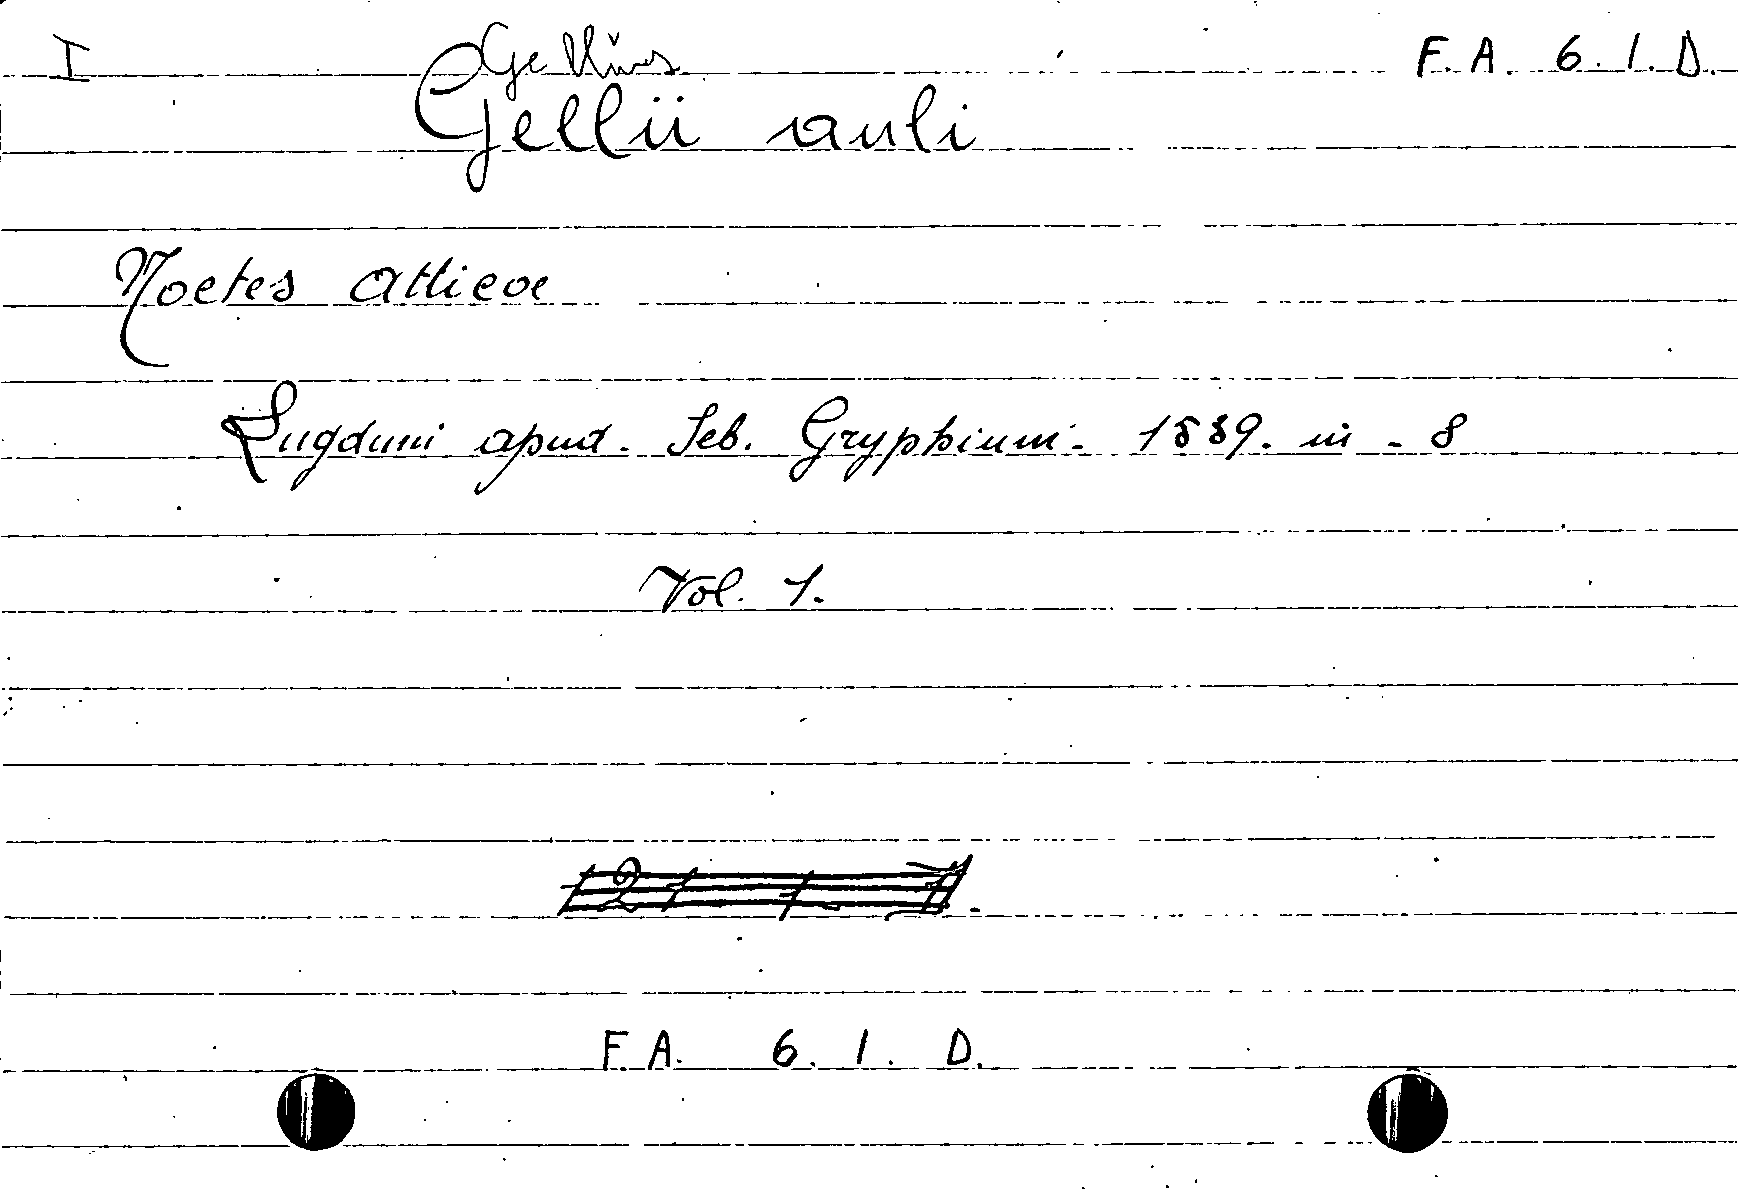 I Gellius F. A. 6. 1. D.
Gellii auli
Noctes atticae
Lugduni apud. Seb. Gryphium. 1539. in - 8
Vol. 1.
F. A. 6. 1. D.